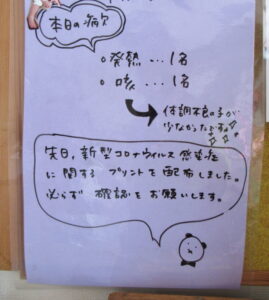 本日の病欠
○発熱…1名
○咳…1名
体調不良の子が
少なかったです
先日、新型コロナウィルス感染症
に関するプリントを配布しました。
必らず確認をお願いします。